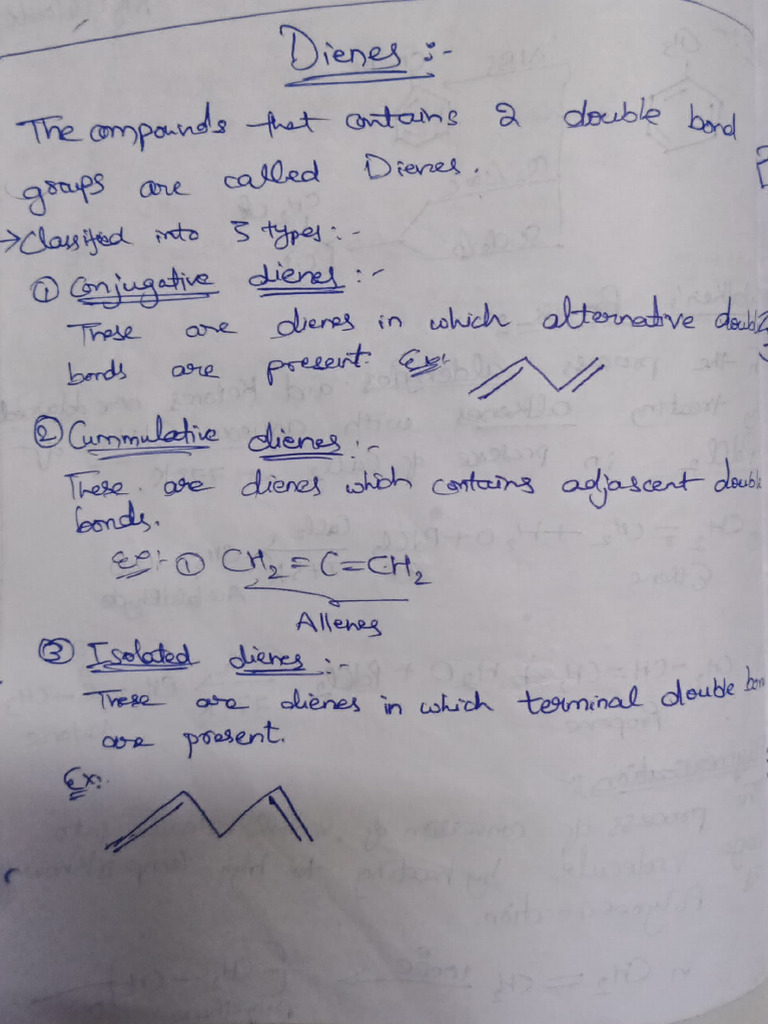 Dienes :-
The compounds that contains 2 double bond
groups are called Dienes.
→ Classified into 3 types:-
① Conjugative dienes :-
These are dienes in which alternative double
bonds are present. Ex:-
② Cummulative dienes :-
These are dienes which contains adjascent double
bonds.
Ex:- ① CH2 = C = CH2
Allenes
③ Isolated dienes :-
These are dienes in which terminal double bon
are present.
Ex:-